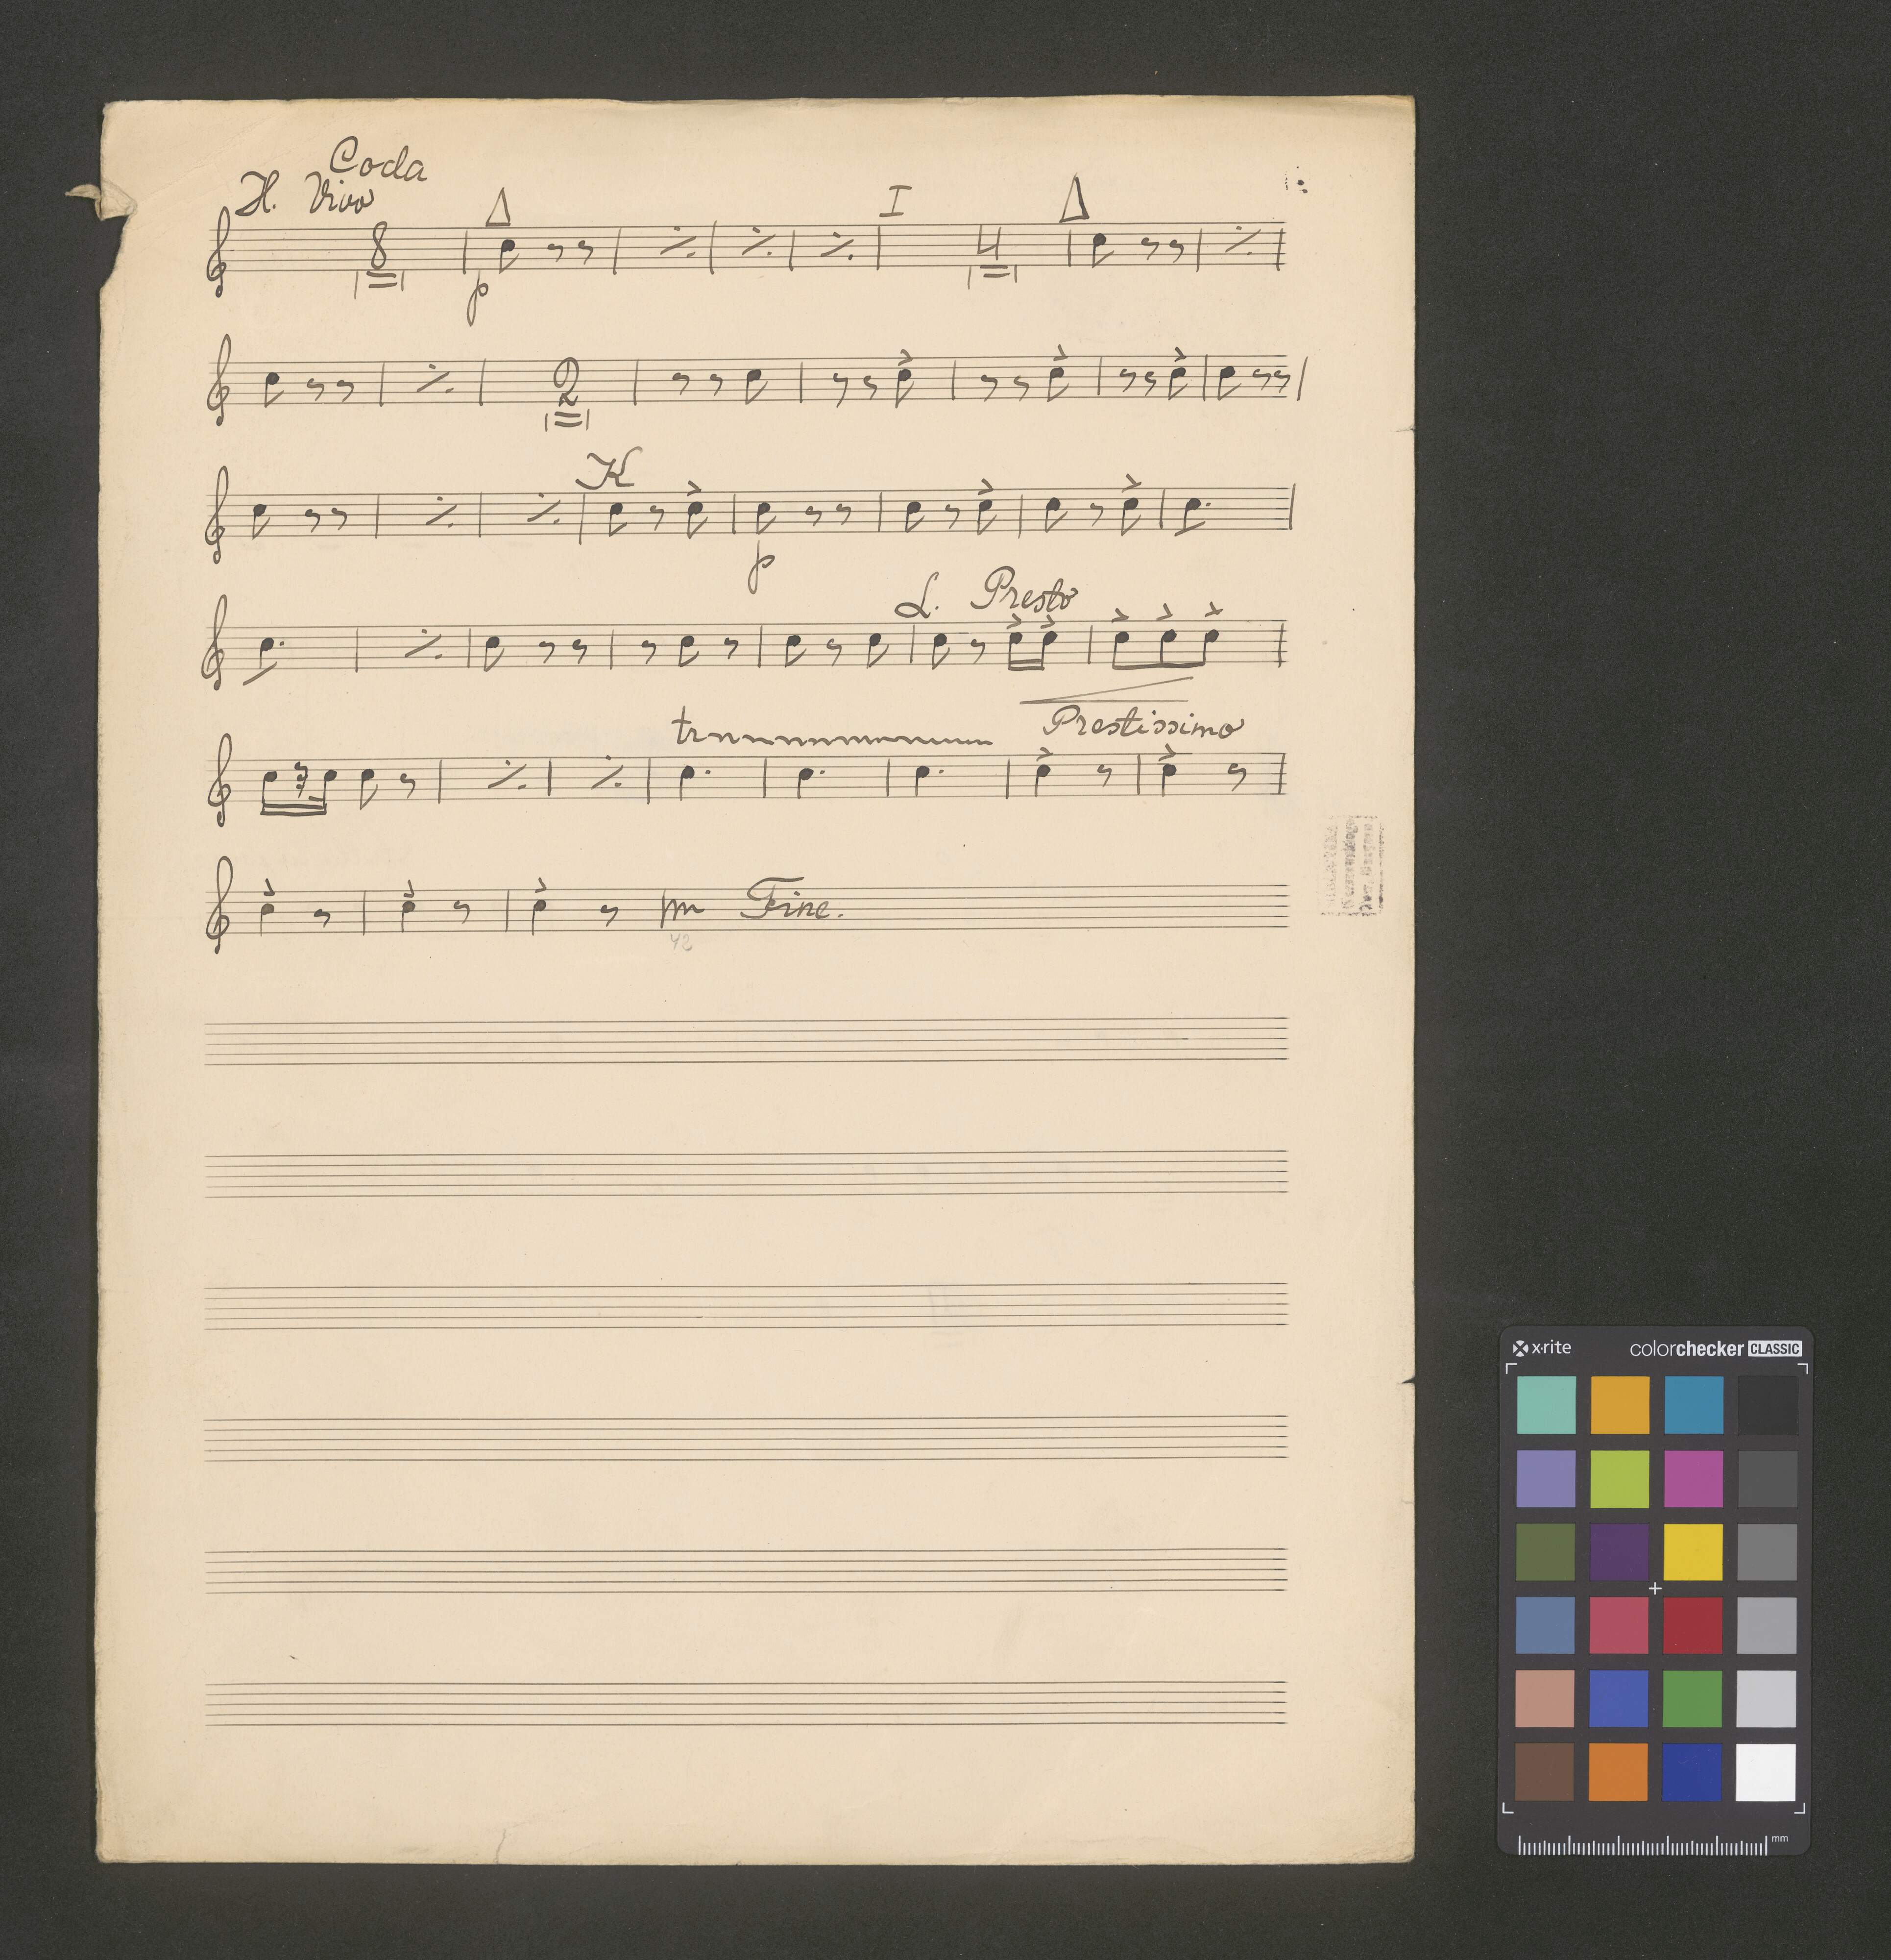 Coda
H. Vivo
I
8
p
4
2
K
p
L. Presto
tr
Prestissimo
Fine.
42
x-rite colorchecker CLASSIC
mm